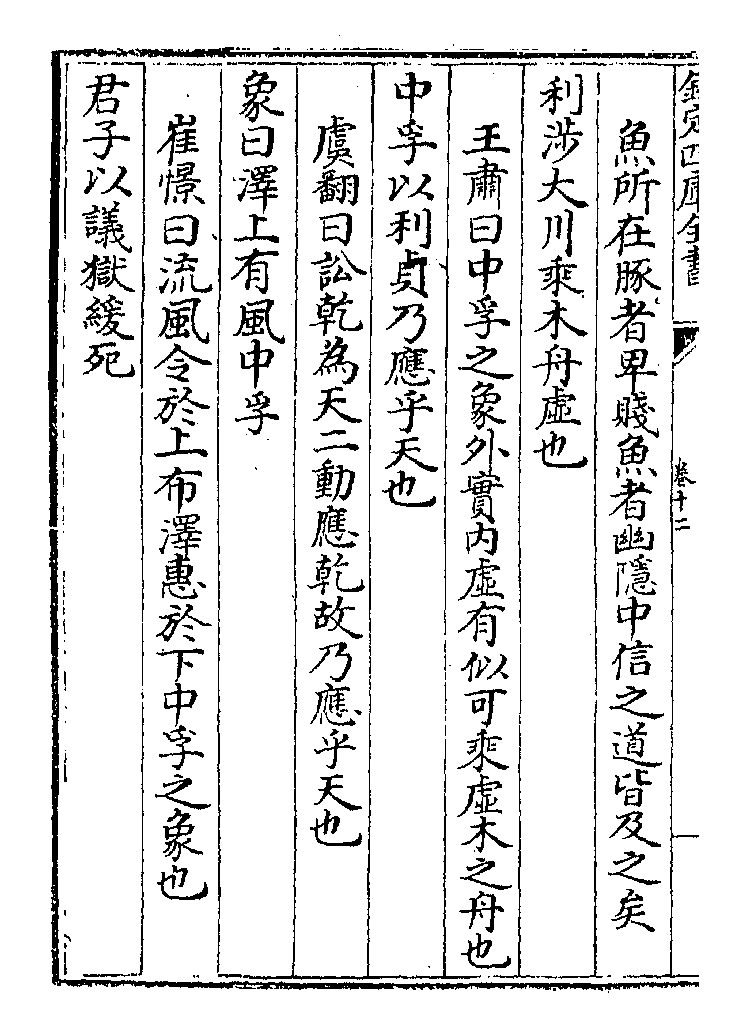 欽定四庫全書
卷十二
魚所在豚者卑賤魚者幽隱中信之道皆及之矣
利涉大川乘木舟虛也
王肅曰中孚之象外實內虛有似可乘虛木之舟也
中孚以利貞乃應乎天也
虞翻曰訟乾為天二動應乾故乃應乎天也
象曰澤上有風中孚
崔憬曰流風令於上布澤惠於下中孚之象也
君子以議獄緩死